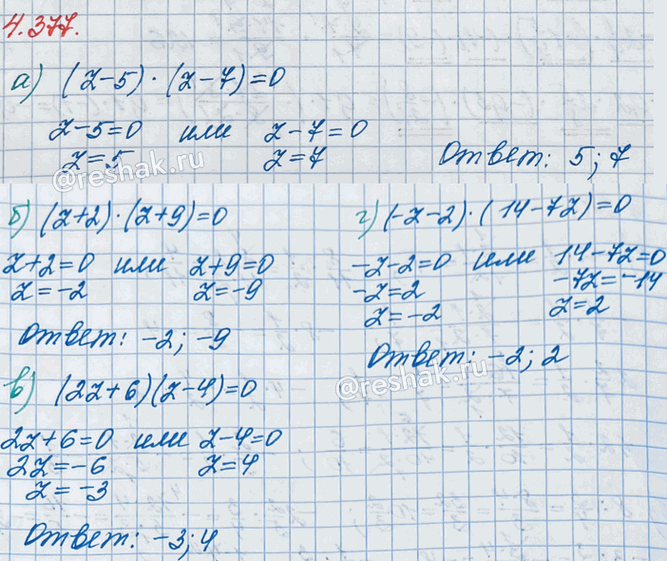 4.377.
а) (z-5)·(z-7)=0
z-5=0 или z-7=0
z=5 z=7
Ответ: 5; 7
©reshak.ru
б) (z+2)·(z+9)=0
z+2=0 или z+9=0
z=-2 z=-9
Ответ: -2; -9
г) (-z-2)·(14-7z)=0
-z-2=0 или 14-7z=0
-z=2 -7z=-14
z=-2 z=2
Ответ: -2; 2
©reshak.ru
в) (2z+6)(z-4)=0
2z+6=0 или z-4=0
2z=-6 z=4
z=-3
Ответ: -3; 4